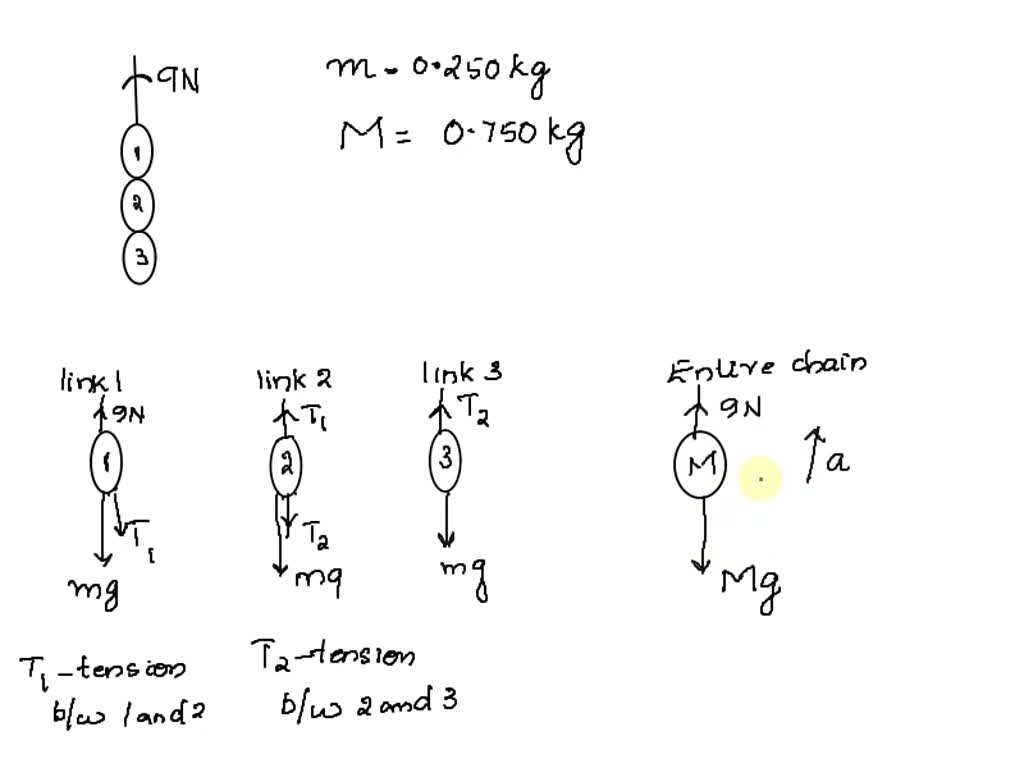 9N
m = 0.250 kg
M = 0.750 kg
1
2
3
link 1
link 2
link 3
Entire chain
9N
T1
T2
9N
1
2
3
M
a
T1
T2
mg
mg
mg
Mg
T1 - tension
b/w 1 and 2
T2 - tension
b/w 2 and 3